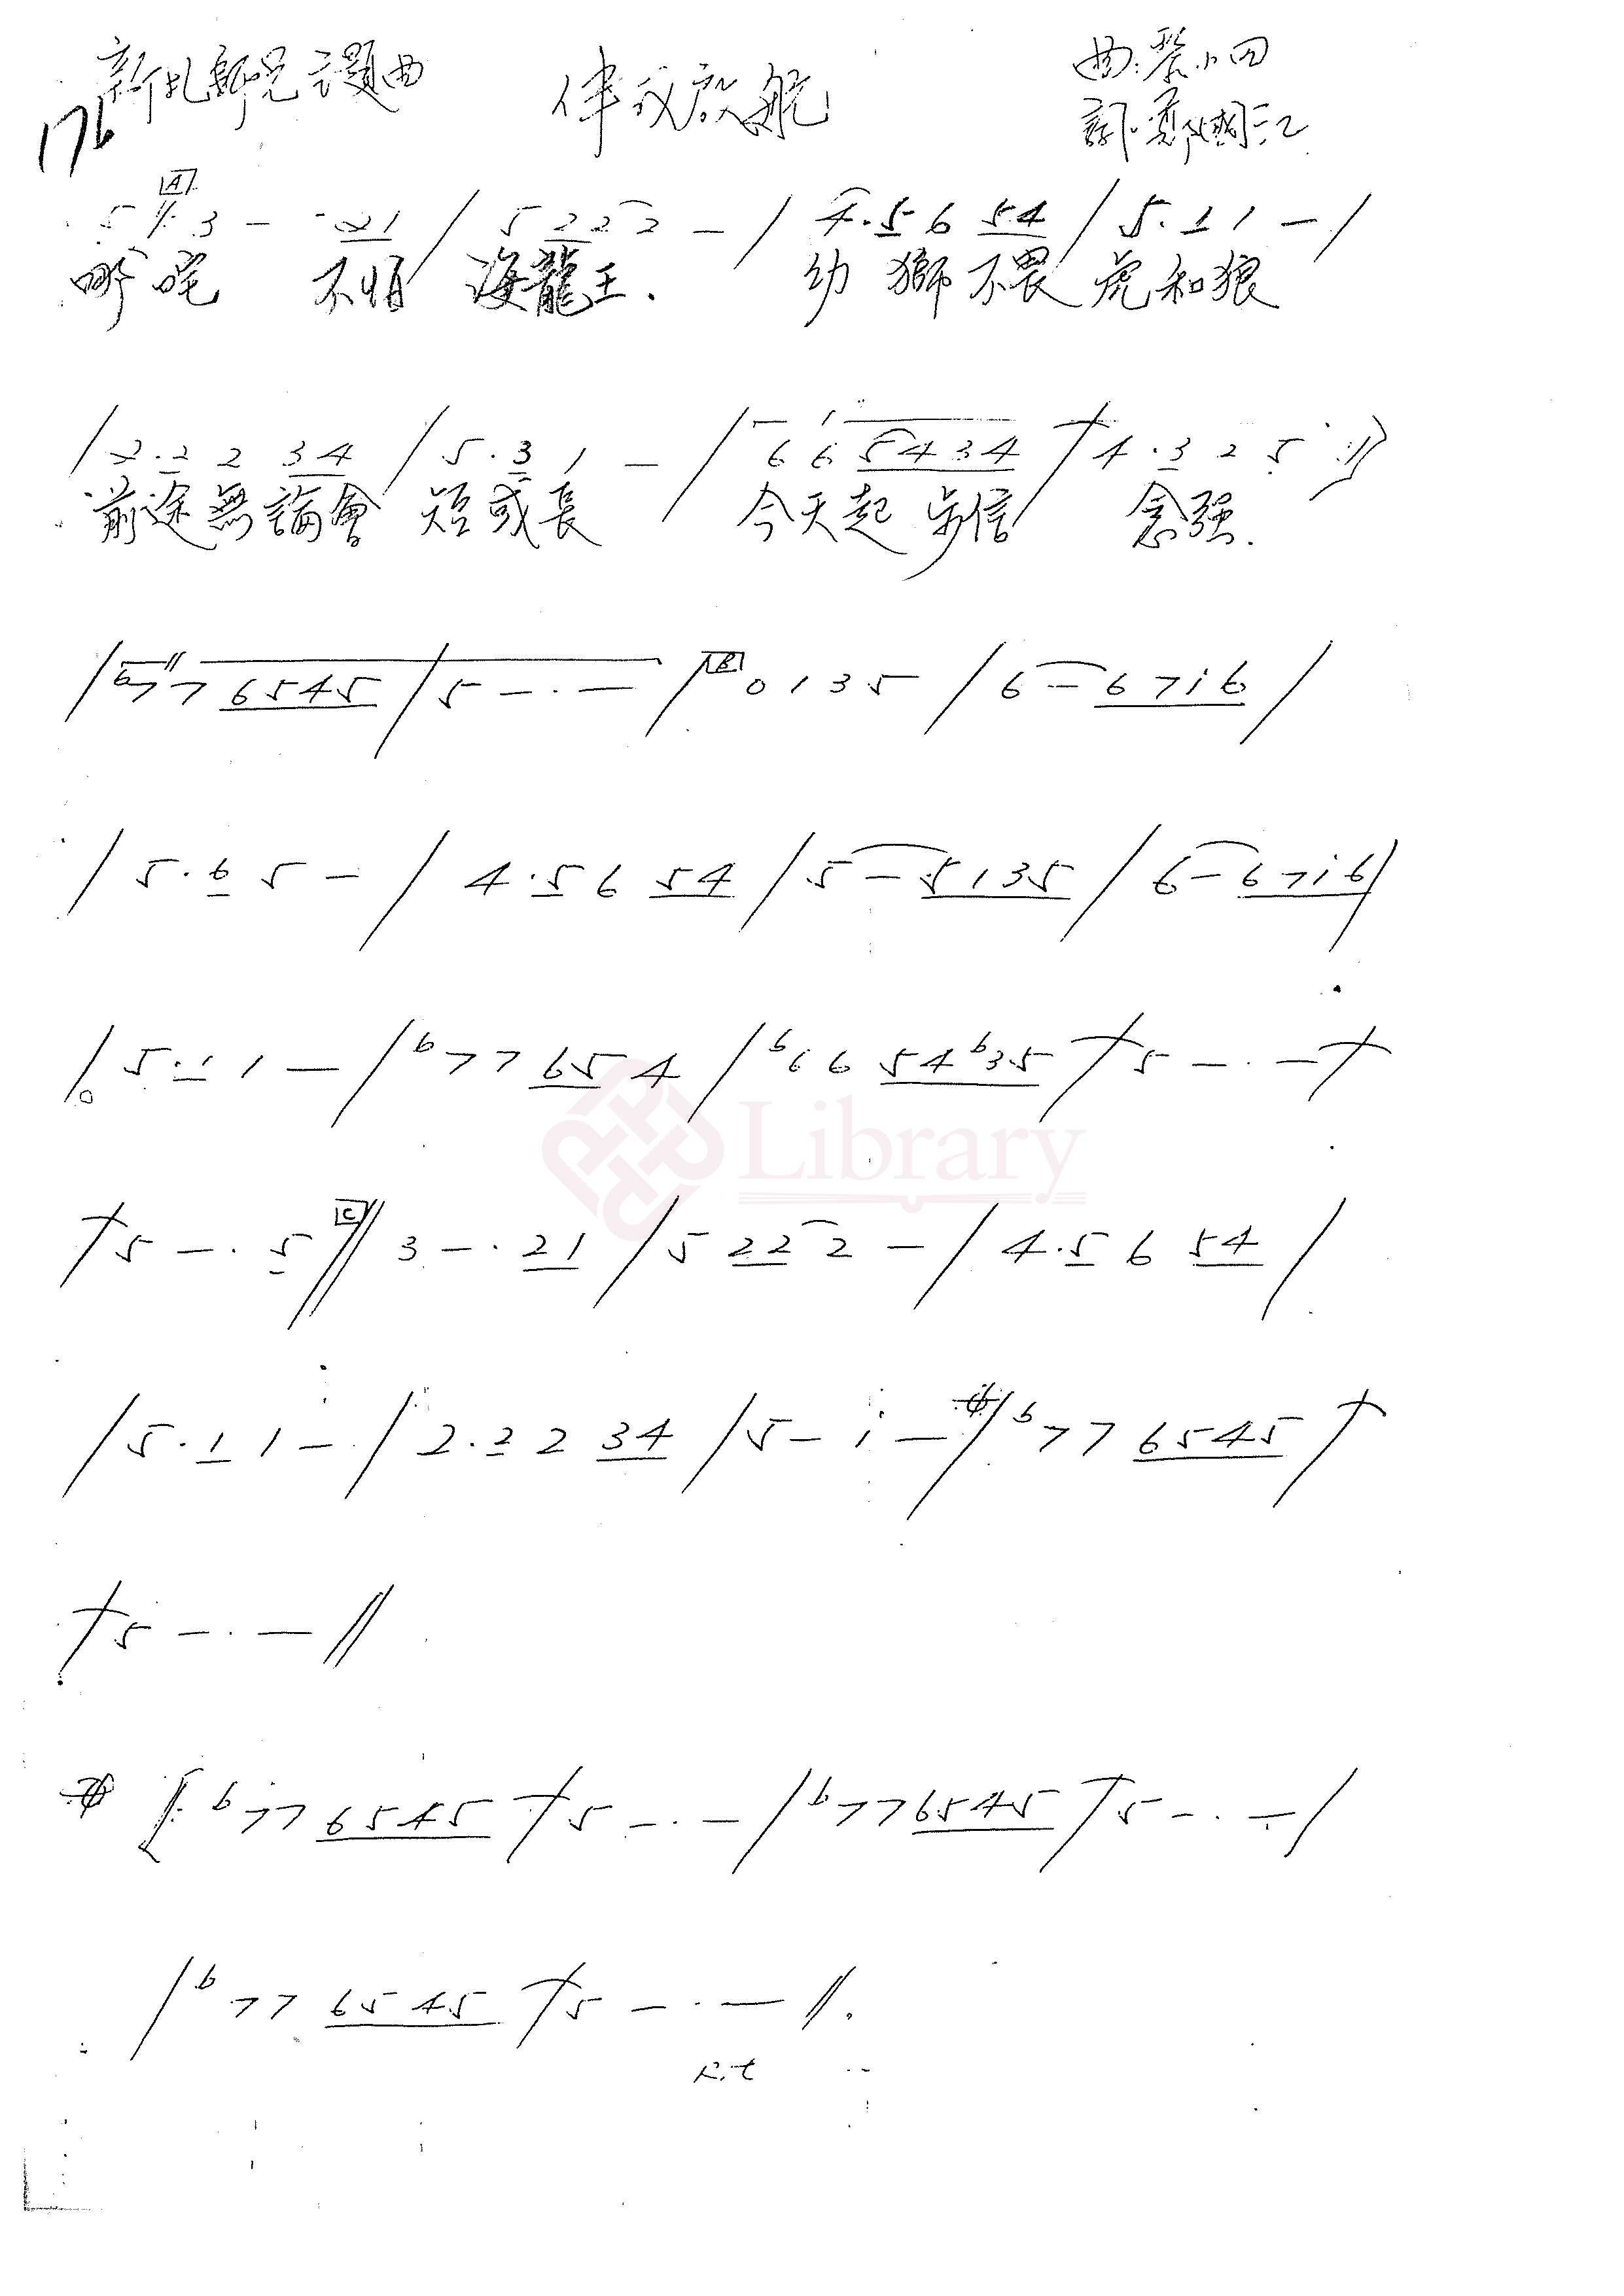 新扎師兄主題曲 伴我啟航 曲:黎小田
176 詞:鄭國江
A
5 /: 3 - · 21 / 5 22 2 - / 4·5 6 54 / 5·1 1 - /
哪咤 不怕 海龍王. 幼獅不畏虎和狼
/ 2·2 2 34 / 5·3 1 - / 6 6 5434 / 4·3 2 5 :/
前途無論會 短或長 今天起步信 念強.
/ b7 7 6545 / 5 - · - / B 0 1 3 5 / 6 - 6716 /
/ 5·6 5 - / 4·5 6 54 / 5 - 5135 / 6 - 6716 /
/ 5·1 1 - / b7 7 65 4 / b6 6 54b35 / 5 - · - /
/ 5 - · 5 // C 3 - · 21 / 5 22 2 - / 4·5 6 54 /
/ 5·1 1 - / 2·2 2 34 / 5 - i - / b7 7 6545 /
/ 5 - · - //
/: b7 7 6545 / 5 - · - / b7 7 6545 / 5 - · - /
/ b7 7 6545 / 5 - · - //.
Rit
Library